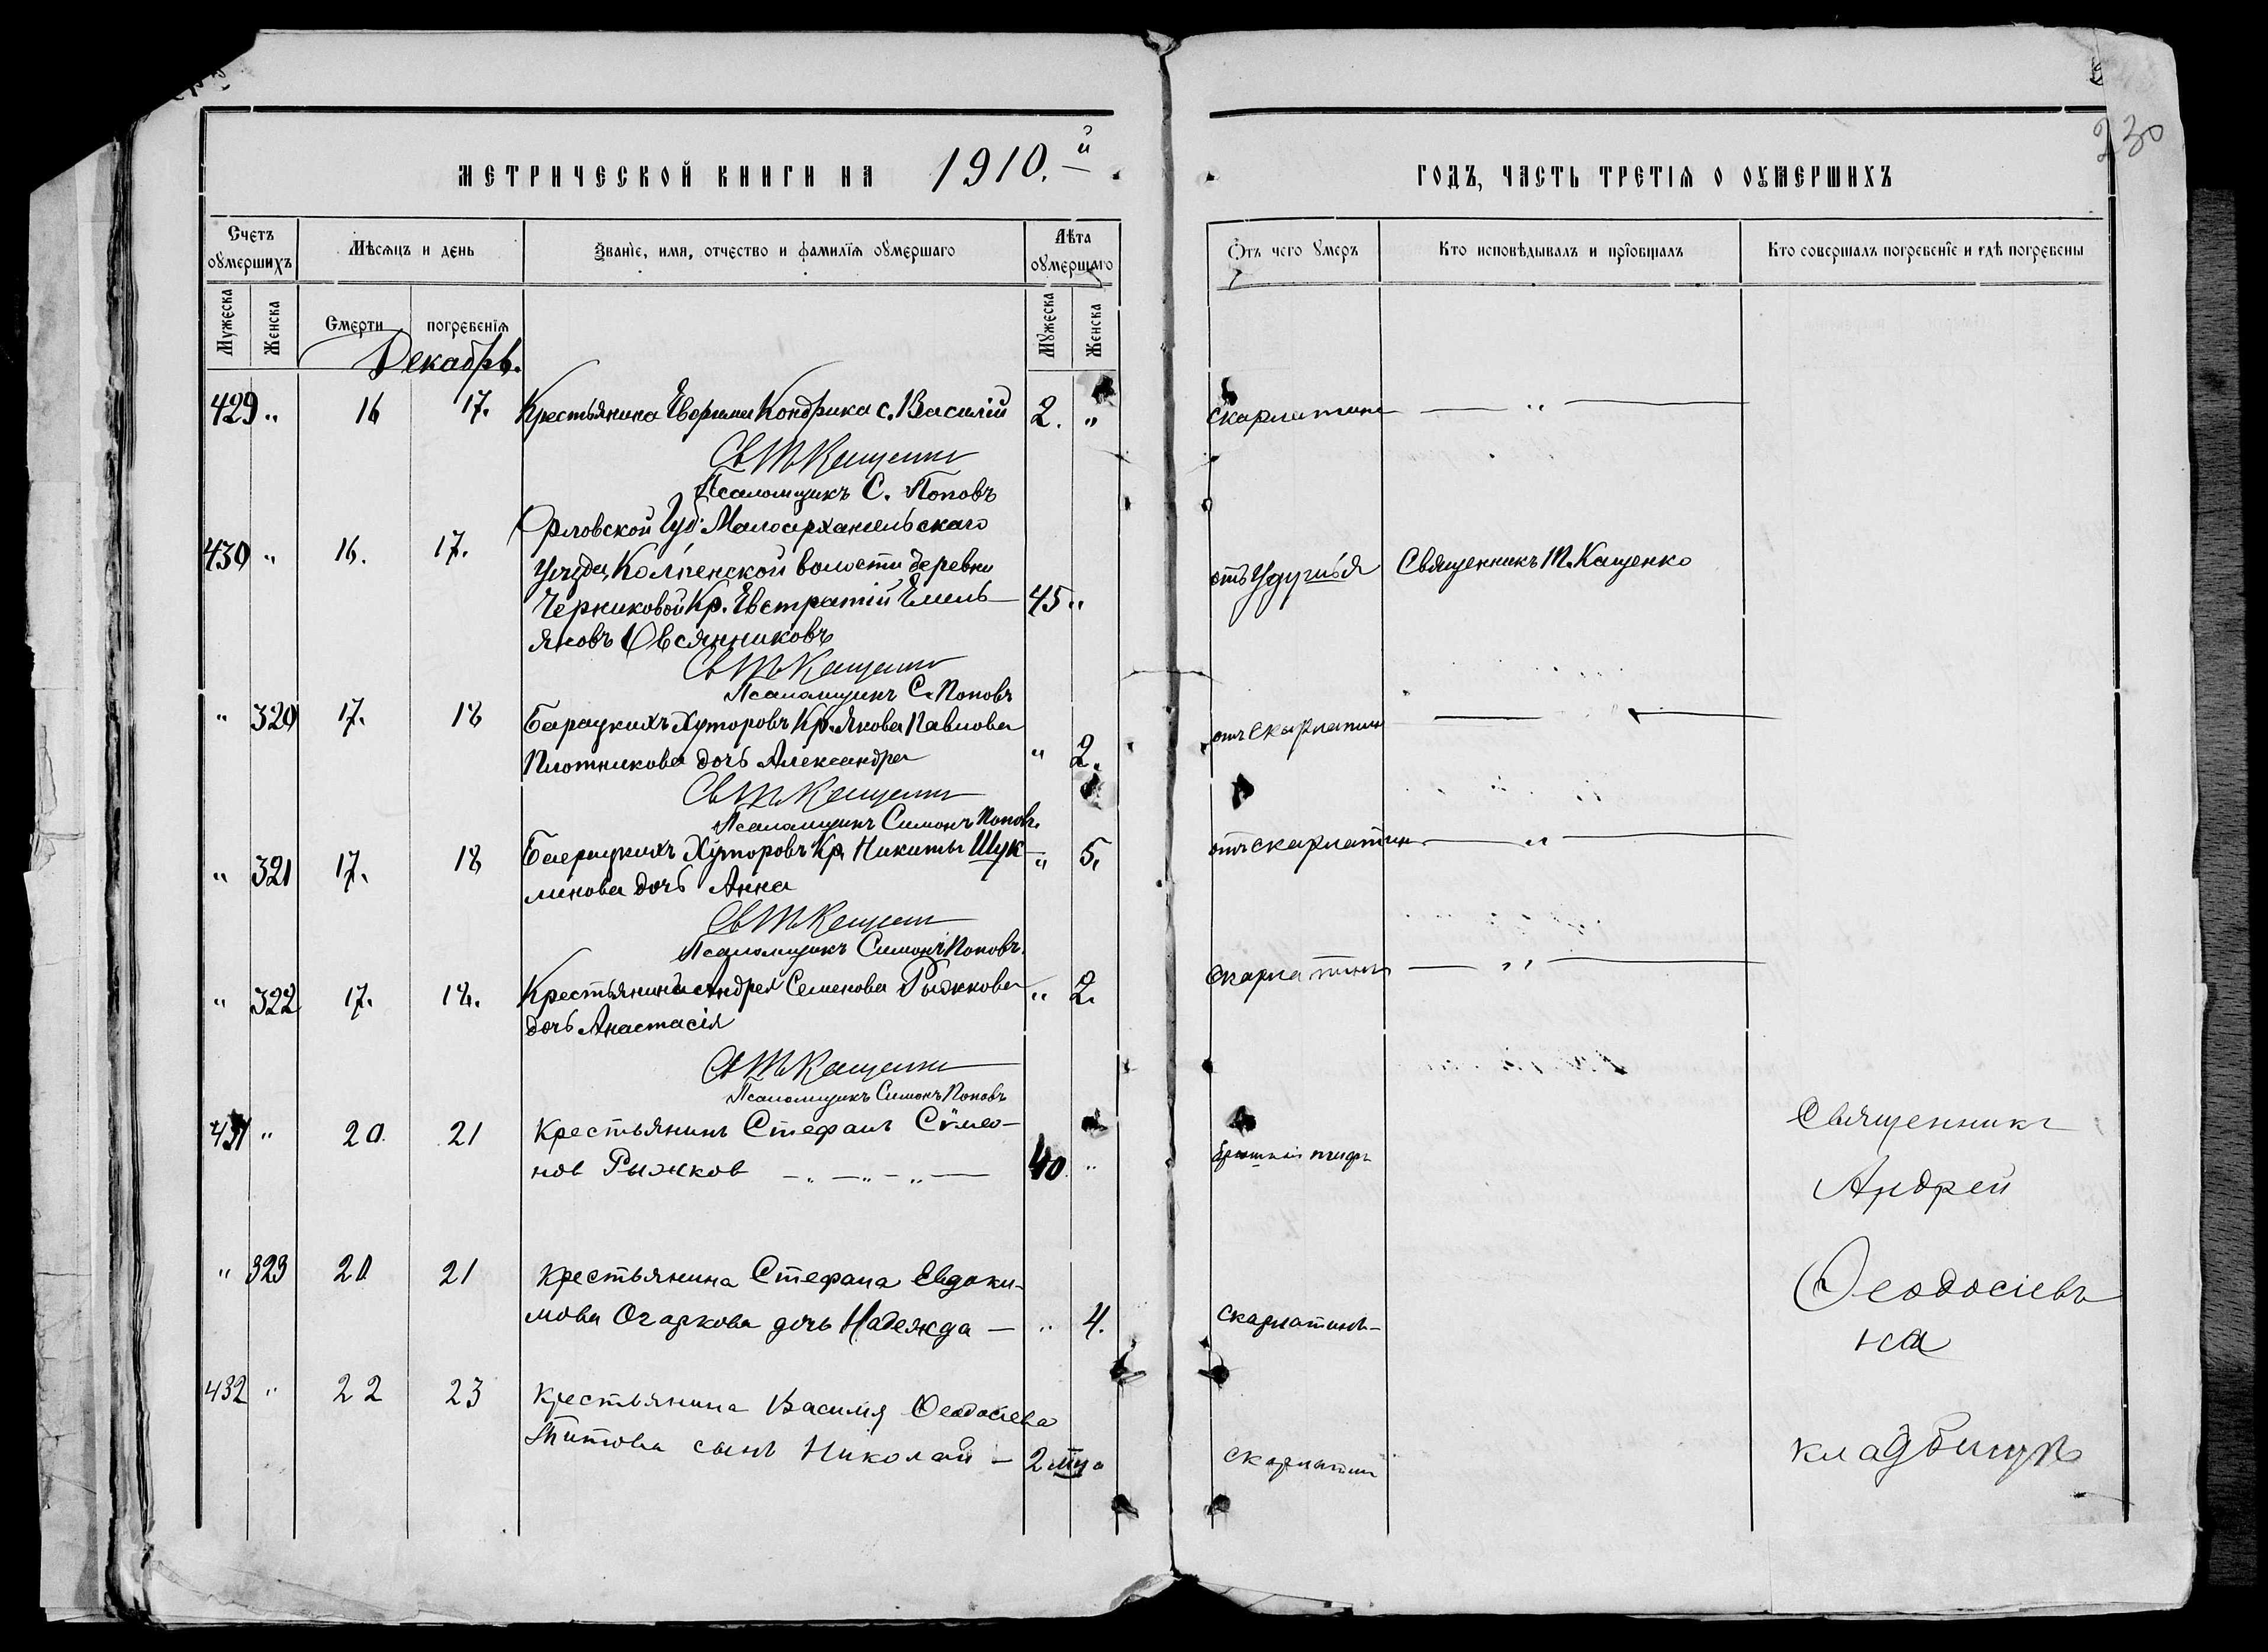 230
МЕТРИЧЕСКОЙ КНИГИ НА 1910.й ГОДЪ, ЧАСТЬ ТРЕТІЯ О ОУМЕРШИХЪ
Счетъ оумершихъ
Мѣсяцъ и день
Званіе, имя, отчество и фамилія оумершаго
Лѣта оумершаго
Отъ чего умеръ
Кто исповѣдывалъ и пріобщалъ
Кто совершалъ погребеніе и гдѣ погребены
Мужеска Женска Смерти погребенія Мужеска Женска
Декабрь.
429 " 16 17. Крестьянина Кондрика с. Василій 2. " скарлатины — " —
Св Т Кащенко
Псаломщикъ С. Поповъ
Орловской Губ. Малоархангельскаго
430 " 16. 17. Уѣзда, Колпенской волости деревни отъ Удушья Священникъ Т. Кащенко
Черниковой Кр. Евстратій Емель- 45 "
яновъ Овсянниковъ
Св Т Кащенко
Псаломщикъ С. Поповъ
" 320 17. 18 Барацкихъ Хуторовъ Кр. Якова Павлова отъ скарлатин — " —
Плотникова дочь Александра " 2.
Св Т Кащенко
Псаломщикъ Симонъ Поповъ.
" 321 17. 18 Барацкихъ Хуторовъ Кр. Никиты Шук- " 5. отъ скарлатин — " —
линова дочь Анна
Св Т Кащенко
Псаломщикъ Симонъ Поповъ.
" 322 17. 18. Крестьянина Андрея Семенова Рыжкова " 2. скарлатины — " —
дочь Анастасія
Св Т Кащенко
Псаломщикъ Симонъ Поповъ
431 " 20. 21 Крестьянинъ Стефанъ Сѵмео- Священникъ
нов Рыжков — " — " — " — 40. " тифъ Андрей
" 323 20 21 Крестьянина Стефана Евдоки- Ѳеодосіевъ
мова Огаркова дочь Надежда — " 4. скарлатина — на
432 " 22 23 Крестьянина Василія Ѳеодосіева
Титова сынъ Николай — 2 мца скарлатин кладбищѣ